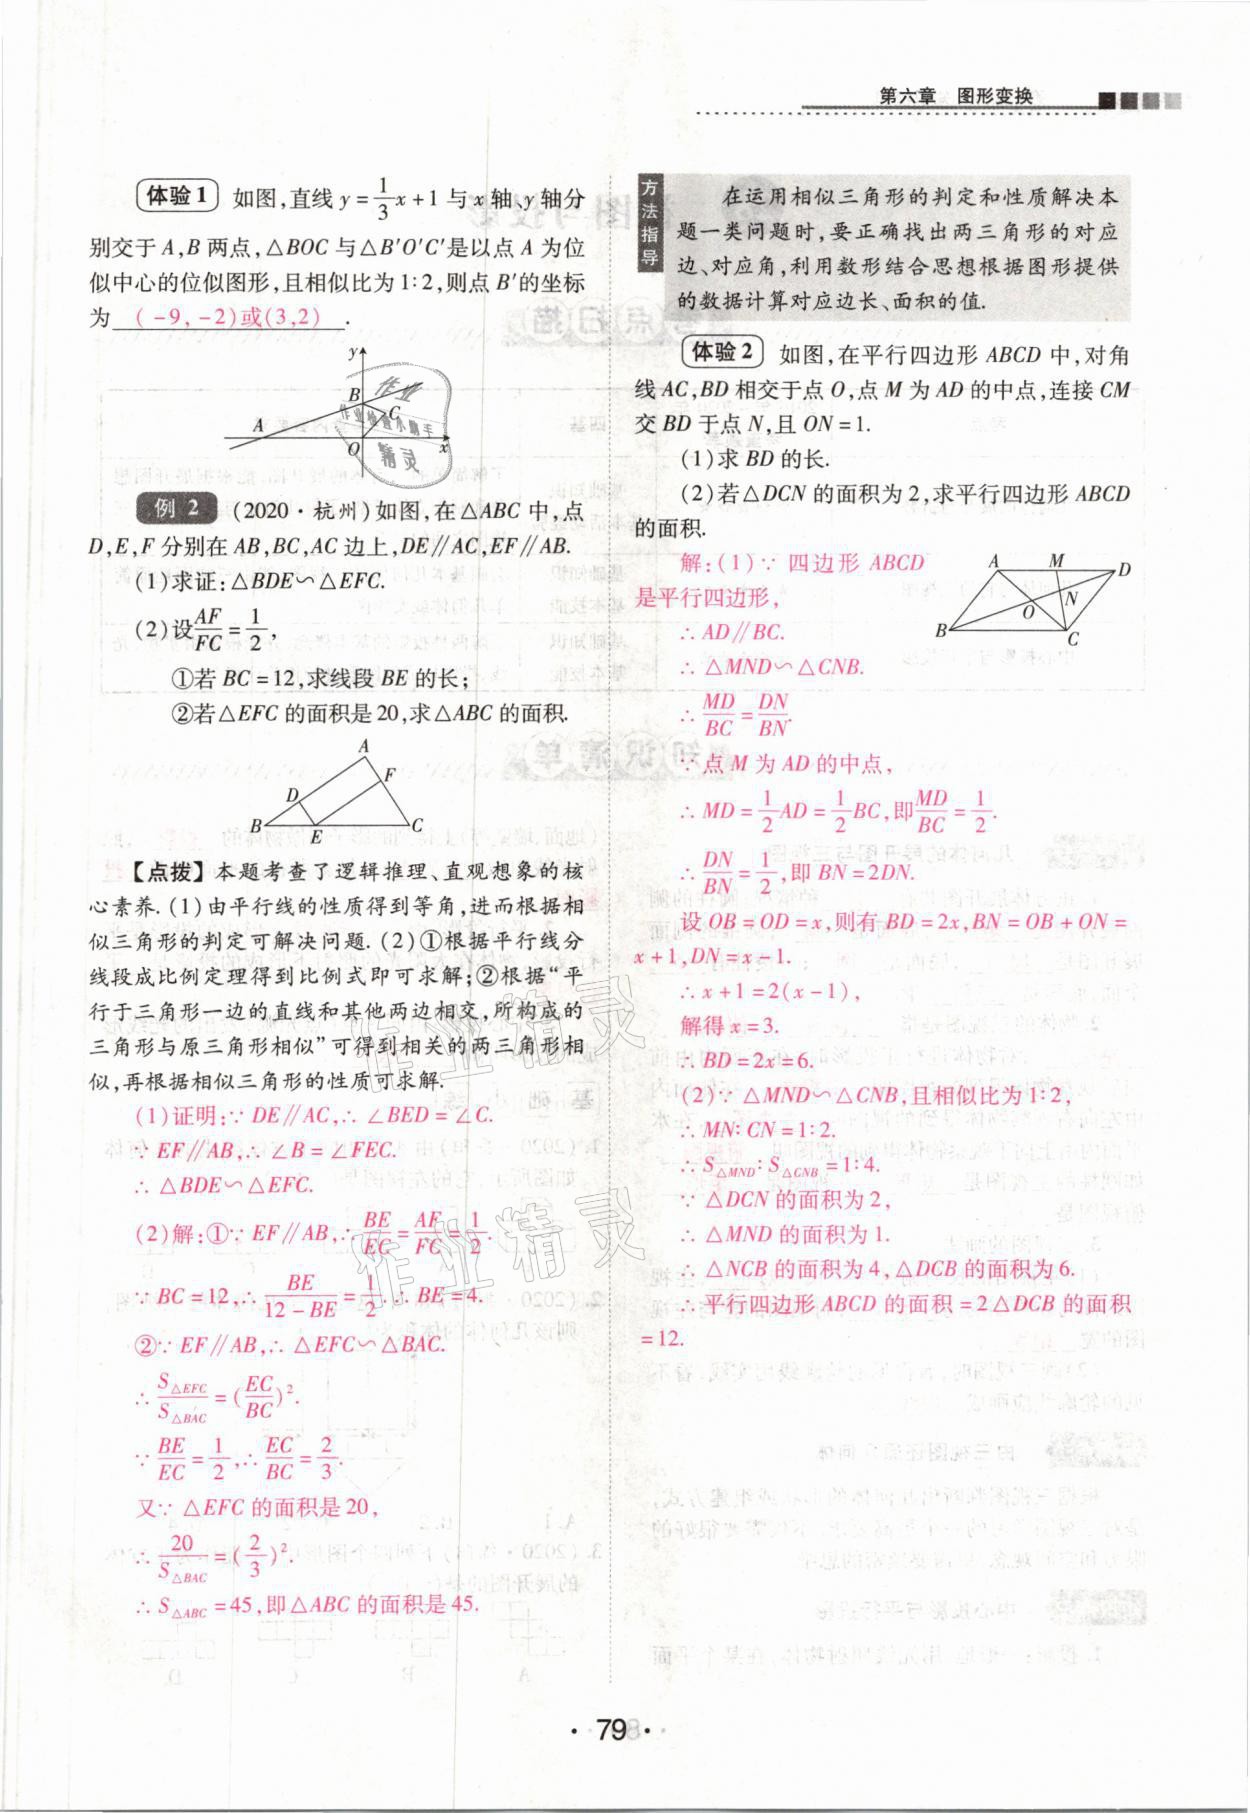 第六章 图形变换
体验1 如图,直线y=1/3x+1与x轴、y轴分
别交于A,B两点,△BOC与△B′O′C′是以点A为位
似中心的位似图形,且相似比为1∶2,则点B′的坐标
为 (-9,-2)或(3,2) .
y
B
C
A
O
x
例2 (2020·杭州)如图,在△ABC中,点
D,E,F分别在AB,BC,AC边上,DE∥AC,EF∥AB.
(1)求证:△BDE∽△EFC.
(2)设AF/FC=1/2,
①若BC=12,求线段BE的长;
②若△EFC的面积是20,求△ABC的面积.
A
F
D
B
E
C
【点拨】本题考查了逻辑推理、直观想象的核
心素养.(1)由平行线的性质得到等角,进而根据相
似三角形的判定可解决问题.(2)①根据平行线分
线段成比例定理得到比例式即可求解;②根据“平
行于三角形一边的直线和其他两边相交,所构成的
三角形与原三角形相似”可得到相关的两三角形相
似,再根据相似三角形的性质可求解.
(1)证明:∵DE∥AC,∴∠BED=∠C.
∵EF∥AB,∴∠B=∠FEC.
∴△BDE∽△EFC.
(2)解:①∵EF∥AB,∴BE/EC=AF/FC=1/2.
∵BC=12,∴BE/(12-BE)=1/2.∴BE=4.
②∵EF∥AB,∴△EFC∽△BAC.
∴S△EFC/S△BAC=(EC/BC)².
∵BE/EC=1/2,∴EC/BC=2/3.
又∵△EFC的面积是20,
∴20/S△BAC=(2/3)².
∴S△ABC=45,即△ABC的面积是45.
方法指导
在运用相似三角形的判定和性质解决本
题一类问题时,要正确找出两三角形的对应
边、对应角,利用数形结合思想根据图形提供
的数据计算对应边长、面积的值.
体验2 如图,在平行四边形ABCD中,对角
线AC,BD相交于点O,点M为AD的中点,连接CM
交BD于点N,且ON=1.
(1)求BD的长.
(2)若△DCN的面积为2,求平行四边形ABCD
的面积.
解:(1)∵四边形ABCD
是平行四边形,
A
M
D
O
N
B
C
∴AD∥BC.
∴△MND∽△CNB.
∴MD/BC=DN/BN.
∵点M为AD的中点,
∴MD=1/2AD=1/2BC,即MD/BC=1/2.
∴DN/BN=1/2,即BN=2DN.
设OB=OD=x,则有BD=2x,BN=OB+ON=
x+1,DN=x-1.
∴x+1=2(x-1),
解得x=3.
∴BD=2x=6.
(2)∵△MND∽△CNB,且相似比为1∶2,
∴MN∶CN=1∶2.
∴S△MND∶S△CNB=1∶4.
∵△DCN的面积为2,
∴△MND的面积为1.
∴△NCB的面积为4,△DCB的面积为6.
∴平行四边形ABCD的面积=2△DCB的面积
=12.
作业精灵
作业精灵
·79·